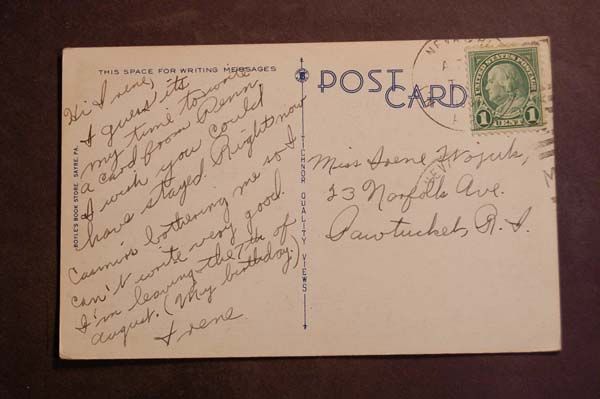 THIS SPACE FOR WRITING MESSAGES
Hi Irene,
I guess its
my time to write
a card from Penn.
I wish you could
have stayed. Right now
Casmir's bothering me so I
can't write very good.
I'm leaving the 7th of
august. (My birthday.)
Irene
BOYLE'S BOOK STORE, SAYRE, PA.
TICHNOR QUALITY VIEWS
POST CARD
UNITED STATES POSTAGE
1 CENT 1
Miss Irene
23 Norfolk Ave.
Pawtucket, R. I.